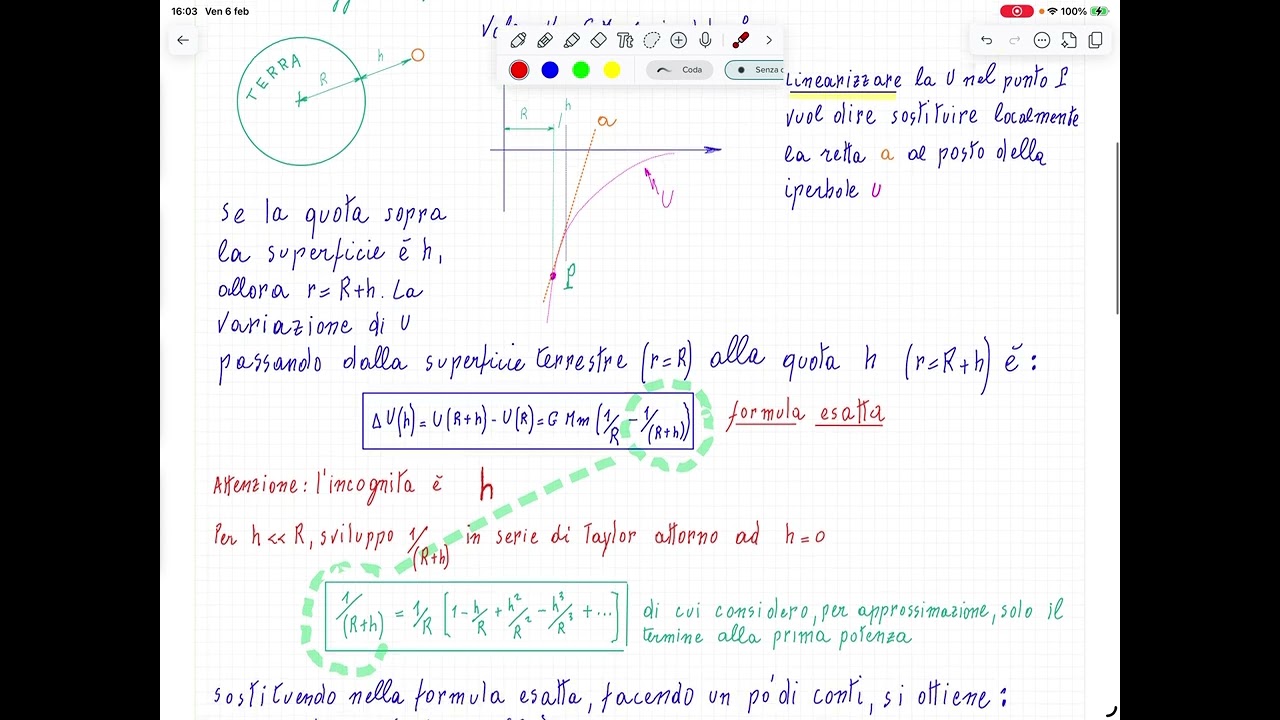 16:03 Ven 6 feb
100%
Coda
Senza c
TERRA
R
h
R
h
a
U
P
Linearizzare la U nel punto P
vuol dire sostituire localmente
la retta a al posto della
iperbole U
Se la quota sopra
la superficie è h,
allora r=R+h. La
variazione di U
passando dalla superficie terrestre (r=R) alla quota h (r=R+h) è:
ΔU(h)=U(R+h)-U(R)=GMm(1/R-1/(R+h))
formula esatta
Attenzione: l'incognita è h
Per h<<R, sviluppo 1/(R+h) in serie di Taylor attorno ad h=0
1/(R+h) = 1/R [1-h/R+h²/R²-h³/R³+...]
di cui considero, per approssimazione, solo il
termine alla prima potenza
sostituendo nella formula esatta, facendo un pò di conti, si ottiene: